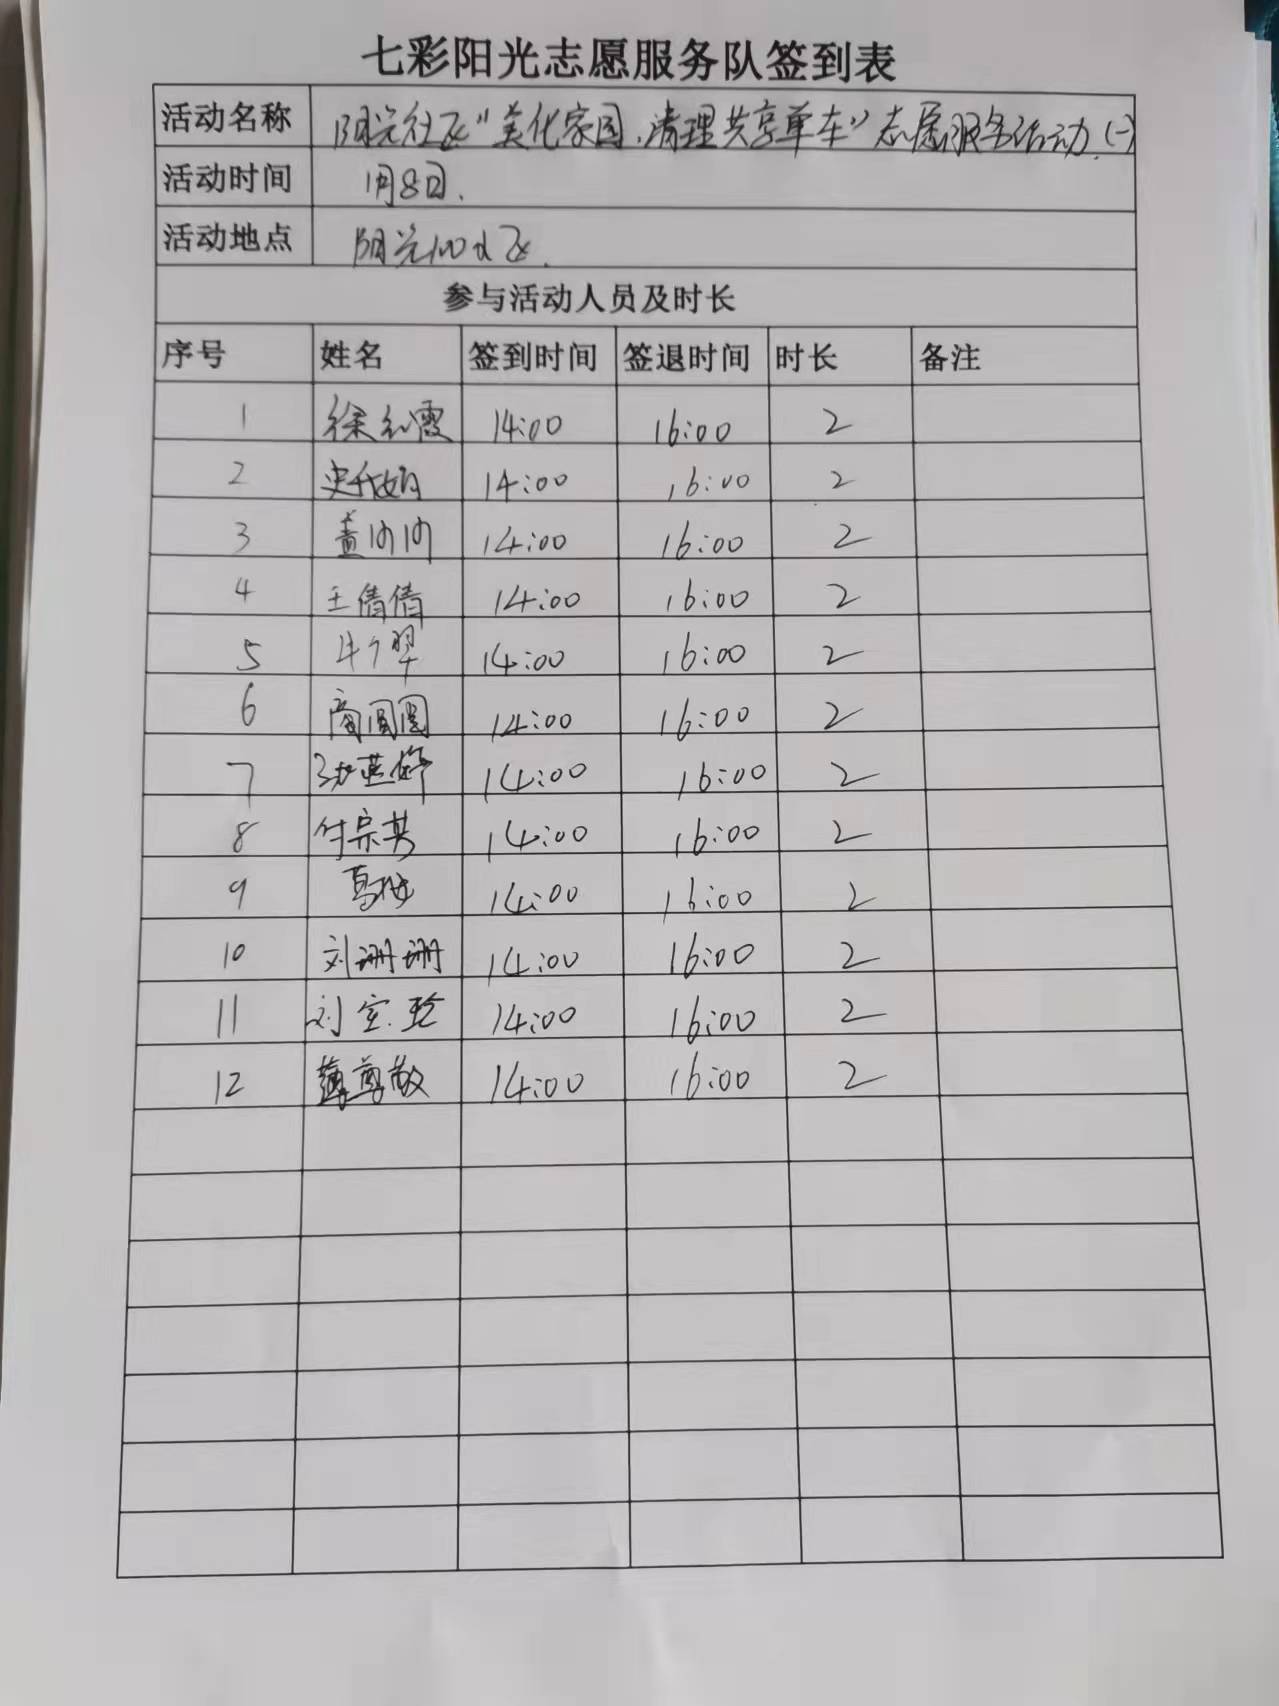 七彩阳光志愿服务队签到表
活动名称 阳光社区"美化家园、清理共享单车"志愿服务活动(一)
活动时间 1月8日.
活动地点 阳光100社区.
参与活动人员及时长
序号 姓名 签到时间 签退时间 时长 备注
1 徐红霞 14:00 16:00 2
2 14:00 16:00 2
3 14:00 16:00 2
4 王倩倩 14:00 16:00 2
5 14:00 16:00 2
6 商圆圆 14:00 16:00 2
7 14:00 16:00 2
8 付宗英 14:00 16:00 2
9 14:00 16:00 2
10 刘珊珊 14:00 16:00 2
11 刘 14:00 16:00 2
12 14:00 16:00 2